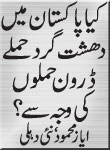 کیا پاکستان میں
دھشت گرد حملے
ڈرون حملوں
کی وجہ سے؟
ایاز محمود نئی دہلی